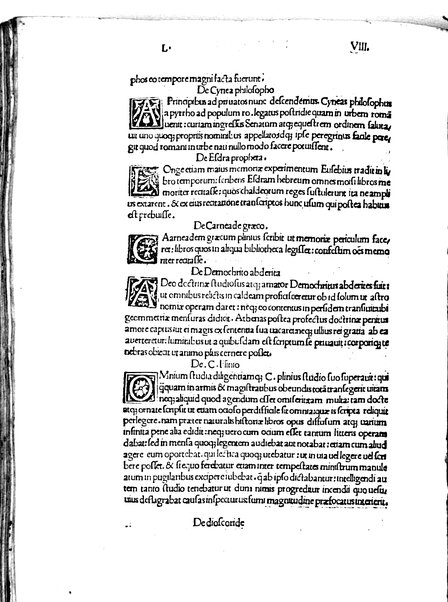 L. VIII.
phos eo tempore magni facta fuerunt.
De Cynea philosopho
A Principibus ad priuatos nunc descendemus. Cyneas philosophus
a pyrrho ad populum ro. legatus postridie quam in urbem romã
uenit: curiam ingressus Senatum atq; equestrem ordinem saluta,
uit uno quoq; propriis nominibus appellato: id q; ipse peregrinus facile pere
git quod romani in urbe nati nullo modo facere potuissent.
De Esdra propheta.
Longe etiam maius memoriæ experimentum Eusebius tradit in li
bro temporum: scribens Esdram hebreum omnes moisi libros me
moriter recitasse: quos chaldeorum reges sustulerunt ita ne ampli
us extarent. & ex eius recitatione transcriptos hunc usum qui postea habitus
est prebuisse.
De Carneade græco.
Carneadem græcum plinius scribit ut memoriæ periculum face,
ret: libros quos in aliqua bibliotheca legisset: confestim oẽs memo
riter recitasse.
De Demochrito abderita
Adeo doctrinæ studiosus atq; amator Demochritus abderites fuit
ut omnibus relictis in caldeam proficisceretur ob id solum ut astro
nomiæ operam daret: neq; eo contentus in persidem transiuit ubi
geometriæ mensuras didicit. Athenas postea profectus doctrinæ penitus
amore captus ut ei magis ex sententia sua uacaret: neq; ullius rei gratia ab ea
auerteretur: luminibus ut a quibusdam est scriptum se priuauit: corporiq; te
nebras obiecit ut animo plus cernere posset.
De .C. Plinio
Omnium studia diligentiamq; C. plinius studio suo superauit: qui
q̃quam in armis & magistratibus obeundis totã transegerit uitam
neq; aliquid quod agendum esset omiserit: tam multa tam docte
atq; ornate scripsit ut etiam ocioso perdifficile sit omnia: quæ is scripta reliquit
perlegere. nam præter naturalis historiæ libros opus diffusum atq; uarium
infinita pene alia edidit: neq; uero cum ocium esset tantum litteris operam
dabat: sed in mensa quoq; legentem audiebat aut notabat: etiam cum aliud
agere eum oportebat. qui lectica quoq; utebatur: ut in uia uel legere uel scri
bere posset. & si equo ferebatur etiam inter tempestates ministrum manule
atum in pugillaribus excipere iubebat. q̃ ab ipso dictabantur: intelligendi au
tem tanto studio tenebatur ut dum nimis progreditur incendii quo uesu,
uius deflagrabat causas inspecturus fumi magnitudine præfocatus interierit.
De dioscoride